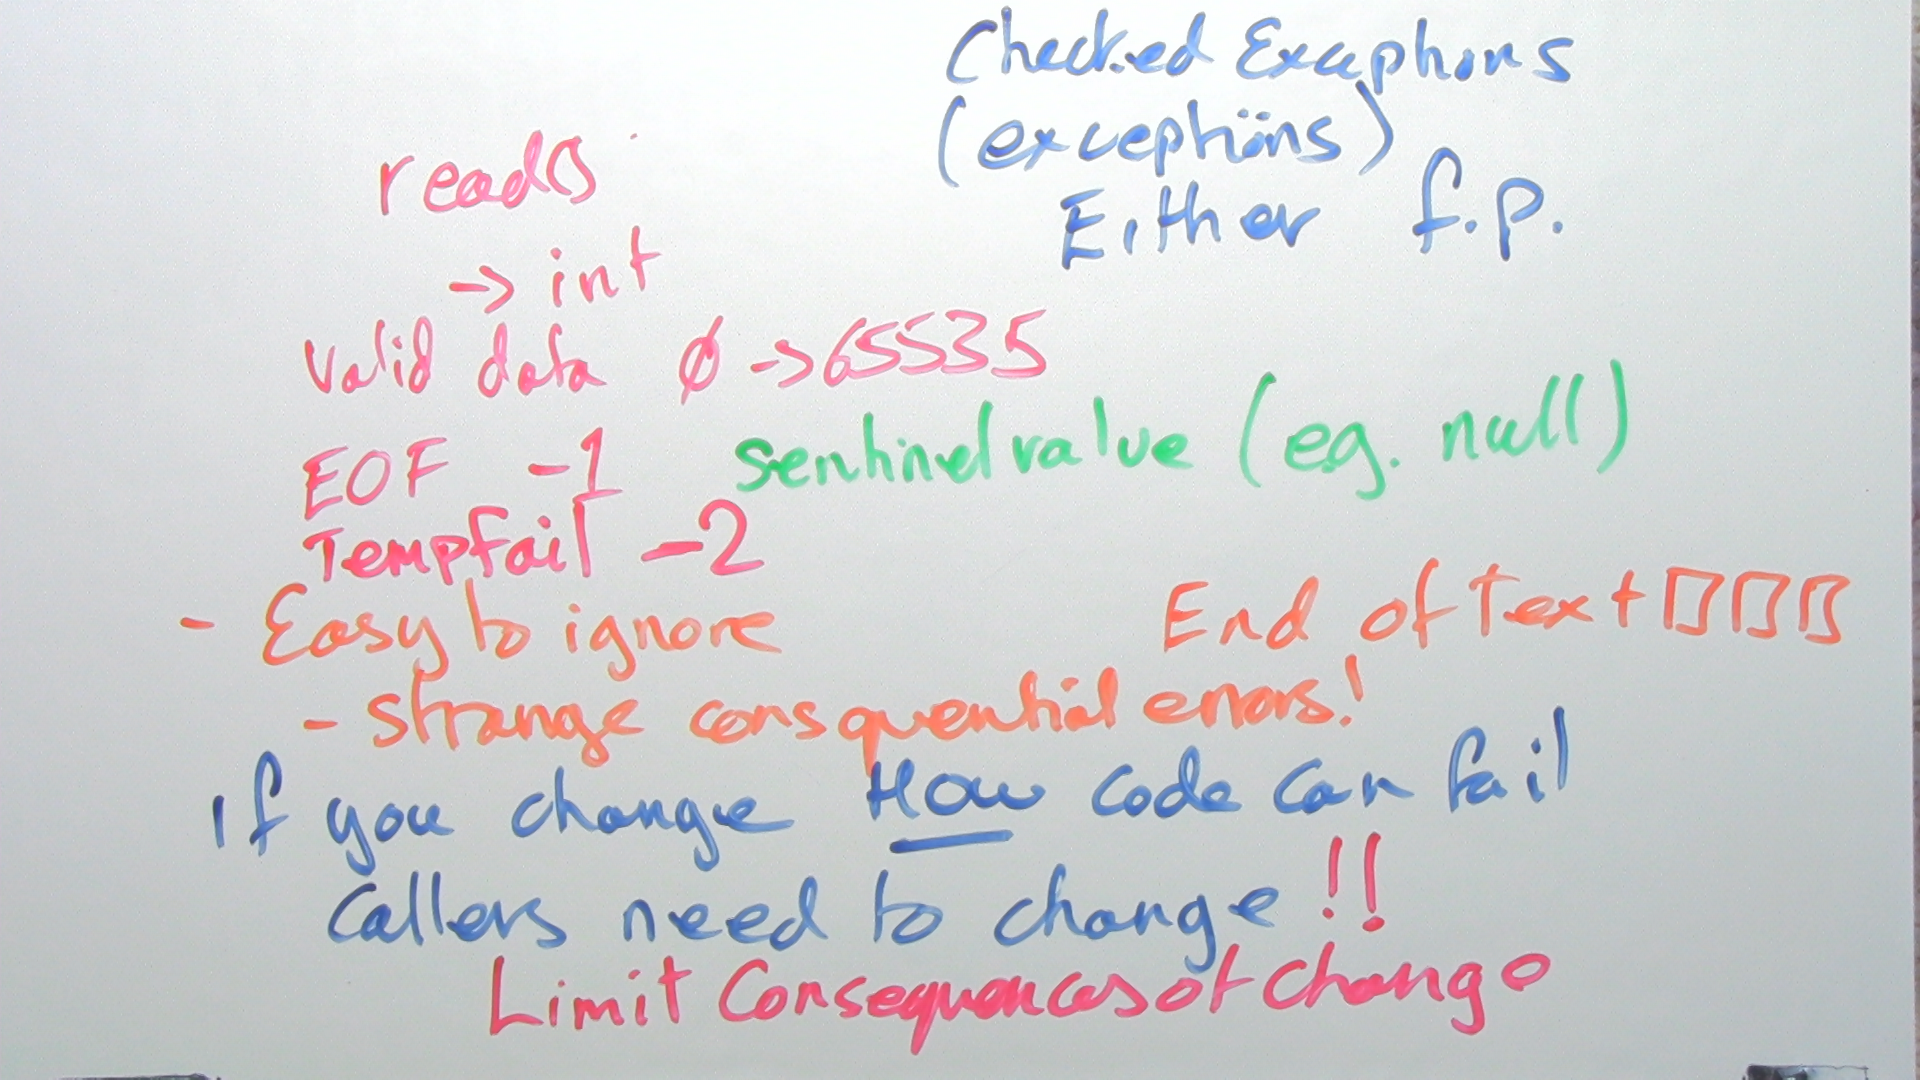 Checked Exceptions
(exceptions)
Either f.p.
read()
-> int
Valid data 0 -> 65535
EOF -1
sentinel value (eg. null)
Tempfail -2
- Easy to ignore
End of Text
- strange consquential errors!
If you change HOW code can fail
Callers need to change!!
Limit Consequences of change